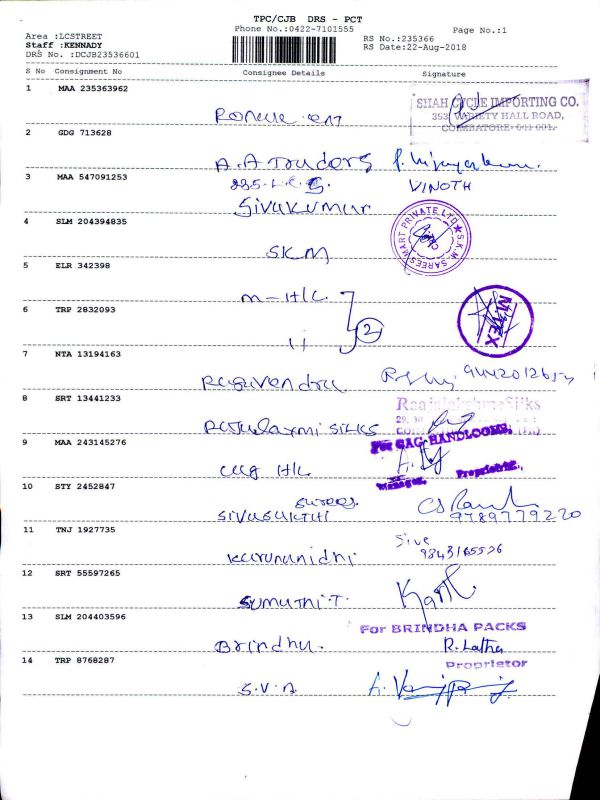 TPC/CJB DRS - PCT
Phone No.:0422-7101555
Page No.:1
Area :LCSTREET
RS No.:235366
Staff :KENNADY
RS Date:22-Aug-2018
DRS No. :DCJB23536601
S No Consignment No Consignee Details Signature
1 MAA 235363962
SHAH CYCLE IMPORTING CO.
353, VARIETY HALL ROAD,
COIMBATORE- 641 001.
2 GDG 713628
A.A Traders
3 MAA 547091253
VINOTH
Sivakumar
4 SLM 204394835
S.K.M. SAREES MART PRIVATE LTD
SKM
5 ELR 342398
M-H/C
6 TRP 2832093
11
2
NITEX
7 NTA 13194163
Ragavendra
8 SRT 13441233
Raajalakshme Silks
Rajalaxmi SILKS
For GAG HANDLOOMS,
9 MAA 243145276
Manager. Proprietrix.
10 STY 2452847
Sarees
Sivasakthi
9789779220
11 TNJ 1927735
Siva
Karunanidhi
12 SRT 55597265
Sumathi.T.
13 SLM 204403596
For BRINDHA PACKS
Brindha.
R. Latha
Proprietor
14 TRP 8768287
S.V.A